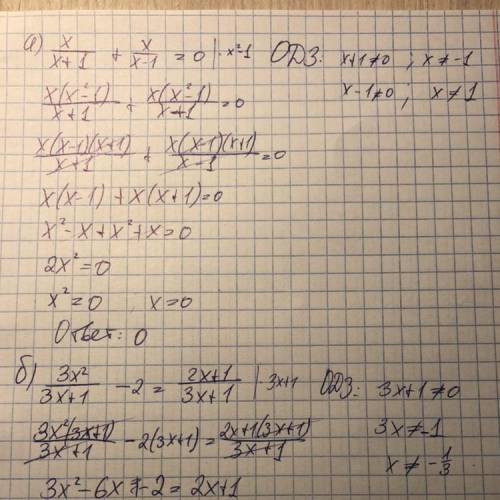 а) x/(x+1) + x/(x-1) = 0 | · x²-1 ОДЗ: x+1≠0 ; x≠-1
x(x²-1)/(x+1) + x(x²-1)/(x+1) = 0 x-1≠0 ; x≠1
x(x-1)(x+1)/(x+1) + x(x-1)(x+1)/(x-1) = 0
x(x-1) + x(x+1) = 0
x²-x+x²+x=0
2x²=0
x²=0 x=0
Ответ: 0
б) 3x²/(3x+1) - 2 = (2x+1)/(3x+1) | · 3x+1 ОДЗ: 3x+1≠0
3x²(3x+1)/(3x+1) - 2(3x+1) = 2x+1(3x+1)/(3x+1) 3x≠-1
3x²-6x-2=2x+1 x≠-1/3